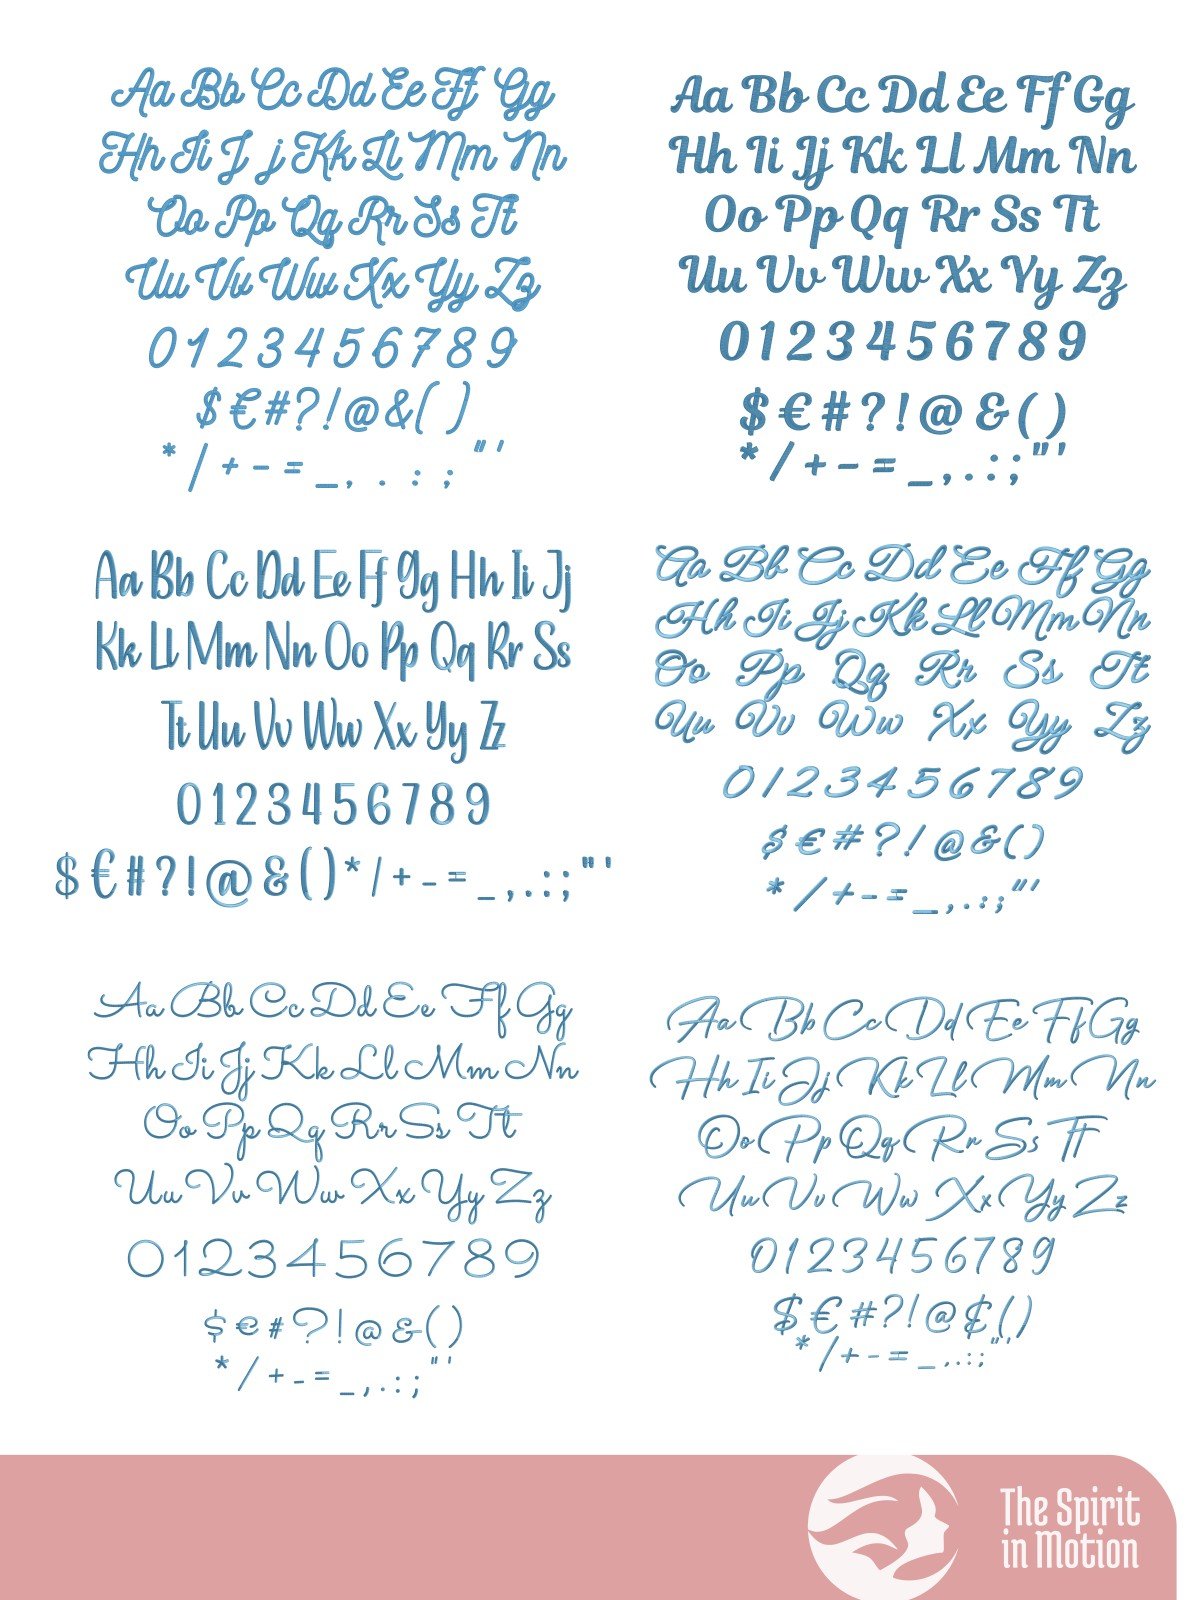 Aa Bb Cc Dd Ee Ff Gg
Hh Ii J j Kk Ll Mm Nn
Oo Pp Qq Rr Ss Tt
Uu Vv Ww Xx Yy Zz
0 1 2 3 4 5 6 7 8 9
$ € # ? ! @ & ( )
* / + - = _ , . : ; " '
Aa Bb Cc Dd Ee Ff Gg
Hh Ii Jj Kk Ll Mm Nn
Oo Pp Qq Rr Ss Tt
Uu Vv Ww Xx Yy Zz
0 1 2 3 4 5 6 7 8 9
$ € # ? ! @ & ( )
* / + - = _ , . : ; " '
Aa Bb Cc Dd Ee Ff Gg Hh Ii Jj
Kk Ll Mm Nn Oo Pp Qq Rr Ss
Tt Uu Vv Ww Xx Yy Zz
0 1 2 3 4 5 6 7 8 9
$ € # ? ! @ & ( ) * / + - = _ , . : ; " '
Aa Bb Cc Dd Ee Ff Gg
Hh Ii Jj Kk Ll Mm Nn
Oo Pp Qq Rr Ss Tt
Uu Vv Ww Xx Yy Zz
0 1 2 3 4 5 6 7 8 9
$ € # ? ! @ & ( )
* / + - = _ , . : ; " '
Aa Bb Cc Dd Ee Ff Gg
Hh Ii Jj Kk Ll Mm Nn
Oo Pp Qq Rr Ss Tt
Uu Vv Ww Xx Yy Zz
0 1 2 3 4 5 6 7 8 9
$ € # ? ! @ & ( )
* / + - = _ , . : ; " '
Aa Bb Cc Dd Ee Ff Gg
Hh Ii Jj Kk Ll Mm Nn
Oo Pp Qq Rr Ss Tt
Uu Vv Ww Xx Yy Zz
0 1 2 3 4 5 6 7 8 9
$ € # ? ! @ & ( )
* / + - = _ , . : ; " '
The Spirit
in Motion